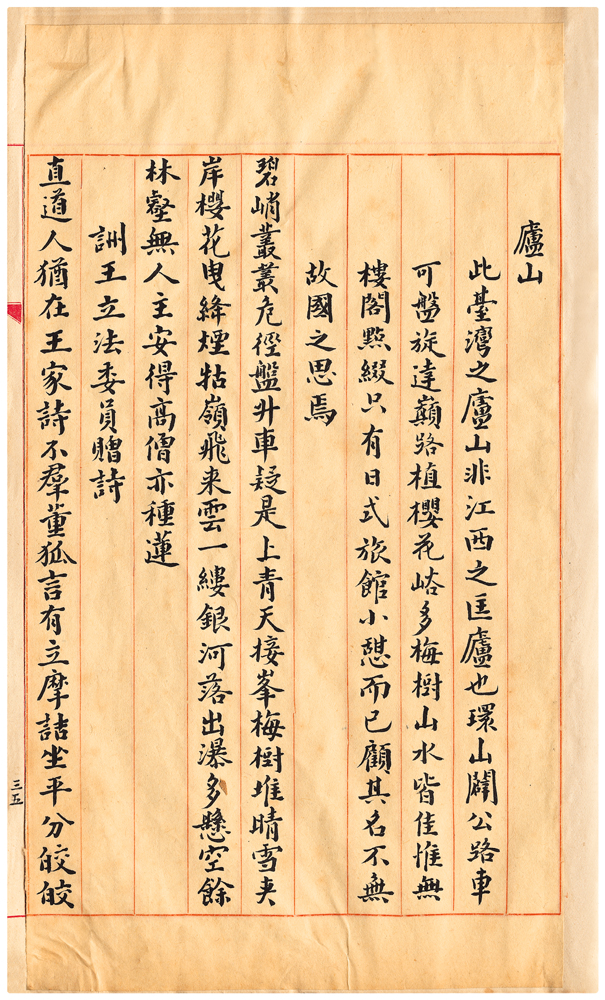 廬山
此臺灣之廬山非江西之匡廬也環山闢公路車
可盤旋達巔路植櫻花峪多梅樹山水皆佳惟無
樓閣點綴只有日式旅館小憇而已顧其名不無
故國之思焉
碧峭叢叢危徑盤升車疑是上青天接峯梅樹堆晴雪夾
岸櫻花曳絳煙牯嶺飛来雲一縷銀河落出瀑多懸空餘
林壑無人主安得高僧亦種蓮
詶王立法委員贈詩
直道人猶在王家詩不羣董狐言有立摩詰坐平分皎皎
三五